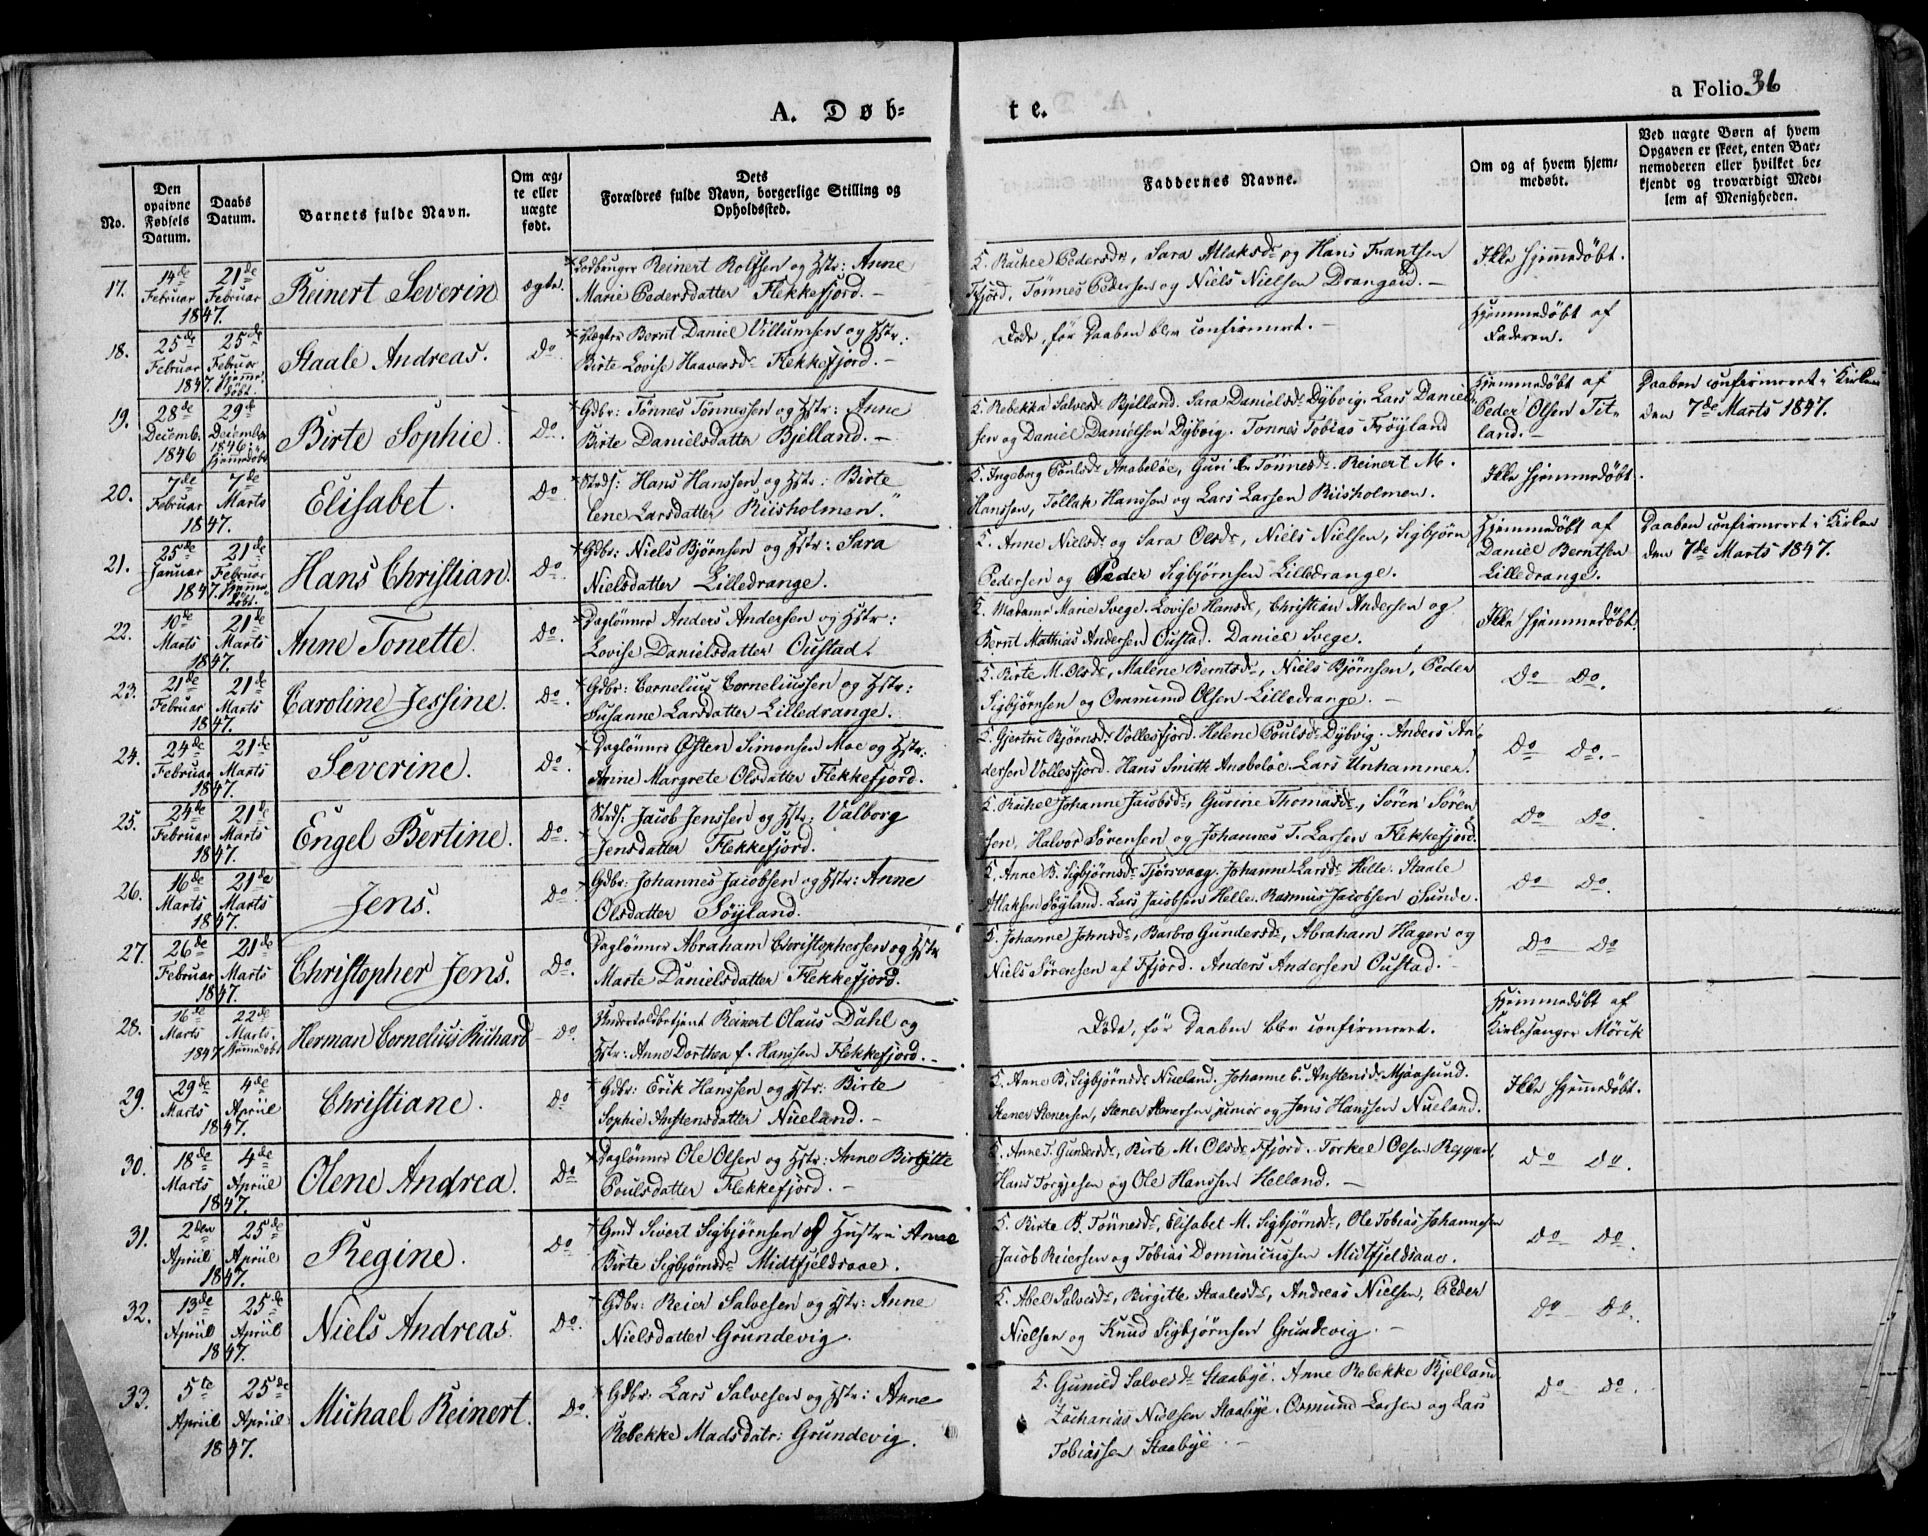 a Folio 36
A. Døb-
te.
No.
Den opgivne Fødsels Datum.
Daabs Datum.
Barnets fulde Navn.
Om ægte eller uægte født.
Dets Forældres fulde Navn, borgerlige Stilling og Opholdssted.
Faddernes Navne.
Om og af hvem hjemmedøbt.
Ved uægte Børn af hvem Opgaven er skeet, enten Barnemoderen eller hvilket bekjendt og troværdigt Medlem af Menigheden.
17. 14de Februar 1847. 21de Februar
Reinert Severin
ægte.
Reinert Rolfsen og Hstr: Anne
Marie Pedersdatter Flekkefjord.
K. Rachel Pedersdr, Sara Atlaksdr og Hans Frantsen
Ffjord, Tønnes Pedersen og Niels Nielsen Drangeid.
Ikke hjemmedøbt.
18. 25de Februar 1847. 25de Februar Hjemmedøbt.
Staale Andreas.
Do.
Bernt Daniel Villumsen og Hstr:
Birte Lovise Haaversdr Flekkefjord.
Døde, før Daaben blev confirmeret.
Hjemmedøbt af
Faderen.
19. 28de Decemb. 1846 29de December 1846 Hjemmedøbt
Birte Sophie.
Do.
Gdbr: Tønnes Tønnessen og Hstr: Anne
Birte Danielsdatter Bjelland.
K. Rebekka Salvesdr Bjelland. Sara Danielsdr Dybvig. Lars Daniel-
sen og Daniel Danielsen Dybvig. Tønnes Tobias Frøyland
Hjemmedøbt af
Peder Olsen Tit-
land.
Daaben confirmeret i Kirken
den 7de Marts 1847.
20. 7de Februar 1847. 7de Marts
Elisabet.
Do.
Strds: Hans Hanssen og Hstr: Birte
lene Larsdatter Riisholmen.
K. Ingeborg Poulsdr Anabeløe, Guri E. Tønnesdr. Reinert M.
Hanssen, Tollak Hanssen og Lars Larsen Riisholmen.
Ikke hjemmedøbt.
21. 25de Januar 1847. 21de Februar Hjemmedøbt.
Hans Christian.
Do.
Gdbr: Niels Bjørnsen og Hstr: Sara
Nielsdatter Lilledrange.
K. Anne Nielsdr og Sara Olsdr, Niels Nielsen, Sigbjørn
Pedersen og Peder Sigbjørnsen Lilledrange.
Hjemmedøbt af
Daniel Berntsen
Lilledrange.
Daaben confirmeret i Kirken
den 7de Marts 1847.
22. 10de Marts 1847. 21de Marts
Anne Tonette.
Do.
Daglønner Anders Andersen og Hstr:
Lovise Danielsdatter Oustad.
K. Madame Marie Svege. Lovise Hansdr, Christian Andersen og
Bernt Mathias Andersen Oustad. Daniel Svege.
Ikke hjemmedøbt.
23. 21de Februar 1847. 21de Marts
Caroline Jessine.
Do.
Gdbr: Cornelius Corneliussen og Hstr:
Susanne Larsdatter Lilledrange.
K. Birte M. Olsdr, Malene Berntsdr, Niels Bjørnsen, Peder
Sigbjørnsen og Ommund Olsen Lilledrange.
Do Do.
24. 24de Februar 1847. 21de Marts
Severine.
Do.
Daglønner Østen Simonsen Moe og Hstr:
Anne Margrete Olsdatter Flekkefjord.
K. Gjertru Bjørnsdr Vollesfjord. Helene Poulsdr Dybvig. Anders An-
dersen Vollesfjord. Hans Smith Anabeløe. Lars Unhammer.
Do Do.
25. 24de Februar 1847. 21de Marts
Engel Bertine.
Do.
Strds: Jacob Jenssen og Hstr: Valborg
Jensdatter Flekkefjord.
K. Rachel Johanne Jacobsdr, Gurine Thomasdr, Søren Søren-
sen, Halvor Sørensen og Johannes T. Larsen Flekkefjord.
Do Do.
26. 16de Marts 1847. 21de Marts
Jens.
Do
Gdbr: Johannes Jacobsen og Hstr: Anne
Olsdatter Søyland.
K. Anne B. Sigbjørnsdr Tjørsvaag. Johanne Larsdr Helle. Staale
Atlaksen Søyland. Lars Jacobsen Helle. Rasmus Jacobsen Sunde.
Do Do.
27. 26de Februar 1847. 21de Marts
Christopher Jens.
Do.
Daglønner Abraham Christophersen og Hstr
Marte Danielsdatter Flekkefjord.
K. Johanne Johnsdr, Barbro Gundersdr, Abraham Hagen og
Niels Sørensen af Ffjord. Anders Andersen Oustad.
Do Do
28. 16de Marts 1847 22de Marts. Hjemmedøbt
Herman Cornelius Richard
Do.
Reinert Olaus Dahl og
Hstr: Anne Dorthea f. Hanssen Flekkefjord.
Døde, før Daaben blev confirmeret.
Hjemmedøbt af
Kirkesanger Mørik
29. 29de Marts 1847. 4de Apriil
Christiane.
Do
Gdbr: Erik Hanssen og Hstr: Birte
Sophie Anstensdatter Nueland.
K. Anne B. Sigbjørnsdr Nueland. Johanne C. Anstensdr Mjaasund.
Stener Stenersen, Stener Stenersen junior og Jens Hanssen Nueland.
Ikke hjemmedøbt.
30. 18de Marts 1847. 4de Apriil
Olene Andrea.
Do
Daglønner Ole Olsen og Hstr: Anne Birgitte
Poulsdatter Flekkefjord.
K. Anne T. Gundersdr, Birte M. Olsdr Ffjord. Torkel Olsen
Hans Torgjesen og Ole Hanssen Helland.
Do Do.
31. 2den Apriil 1847. 25de Apriil
Regine.
Do
Gmd Sivert Sigbjørnsen og Hustru Anne
Birte Sigbjørnsdr Midtfjeldsaae.
K. Birte B. Tønnesdr, Elisabet M. Sigbjørnsdr, Ole Tobias Johannesen
Jacob Reiersen og Tobias Dominicussen Midtfjeldsaae.
Do Do.
32. 13de Apriil 1847. 25de Apriil
Niels Andreas.
Do.
Gdbr: Reier Salvesen og Hstr: Anne
Nielsdatter Grundevig.
K. Abel Salvesdr, Birgitte Staalesdr, Andreas Nielsen, Peder
Nielsen og Knud Sigbjørnsen Grundevig.
Do Do.
33. 5te Apriil 1847. 25de Apriil
Michael Reinert.
Do.
Gdbr: Lars Salvesen og Hstr: Anne
Rebekke Madsdatr: Grundevig.
K. Gunild Salvesdr Staabye. Anne Rebekke Bjelland
Zacharias Nielsen Staabye. Osmund Larsen og Lars
Tobiassen Staabye.
Do Do.